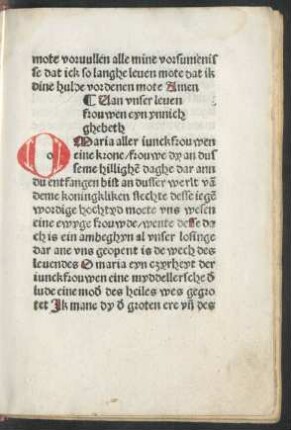 mote voruullen alle mine vorsumenis
se dat ick so langhe leuen mote dat ik
dine hulde vordenen mote Amen
¶ Uan vnser leuen
frouwen eyn ynnich
ghebeth
O Maria aller iunckfrouwen
eine krone/frouwe dy an dus
seme hillighē daghe dar ann
du entfangen bist an dusser werlt vā
deme koningkliken slechte desse iegē
wordige hochtyd moete vns wesen
eine ewyge frouwde/wente desse da
ch is ein ambeghyn al vnser losinge
dar ane vns geopent is de wech des
leuendes O maria eyn czyrheyt der
iunckfrouwen eine myddellersche d̄
lude eine mod̄ des heiles wes gegro
tet Ik mane dy d̄ groten ere vn̄ des